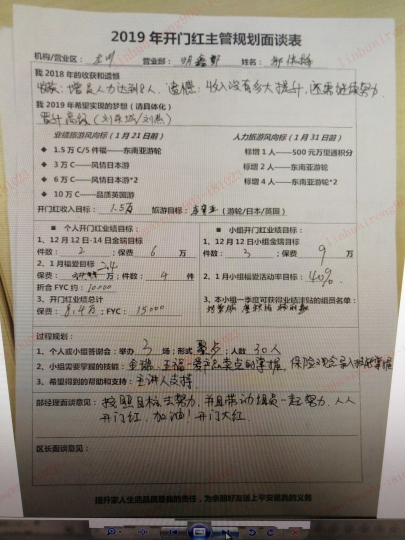 2019年开门红主管规划面谈表
机构/营业区: 营业部: 姓名:
我2018年的收获和遗憾
收获:增员人力达到8人,遗憾:收入没有多大提升,还需继续努力
我2019年希望实现的梦想(请具体化)
晋升高级
业绩旅游风向标(1月21日前) 人力旅游风向标(1月31日前)
1.5万C/5件福——东南亚游轮 标增1人——500元万里通积分
3万C——风情日本游 标增2人——东南亚游轮
6万C——风情日本游*2 标增4人——东南亚游轮*2
10万C——品质英国游
开门红收入目标:1.5万 旅游目标: (游轮/日本/英国)
个人开门红业绩目标: 小组开门红业绩目标:
1、12月12日-14日金瑞目标 1、12月12日小组金瑞目标
件数:2 ;保费:6 万 件数:3 ;保费:9 万
2、1月福爱目标 2.4 2、1月小组福爱活动率目标:40%
保费: 万;件数:4 件
折合FYC约:10000
3、开门红业绩总计 3、本小组一季度可获得业绩津贴的组员名单:
保费:8.4万;FYC:15000
过程规划:
1、个人或小组答谢会:举办 3 场;形式 ;人数 30人
2、小组需要掌握的技能:
3、希望得到的帮助和支持:主讲人支持.
部经理面谈意见:按照目标去努力,并且带动组员一起努力,人人
开门红,加油!开门大红.
区长面谈意见:
提升家人生活品质是我的责任,为亲朋好友送上平安是我的义务